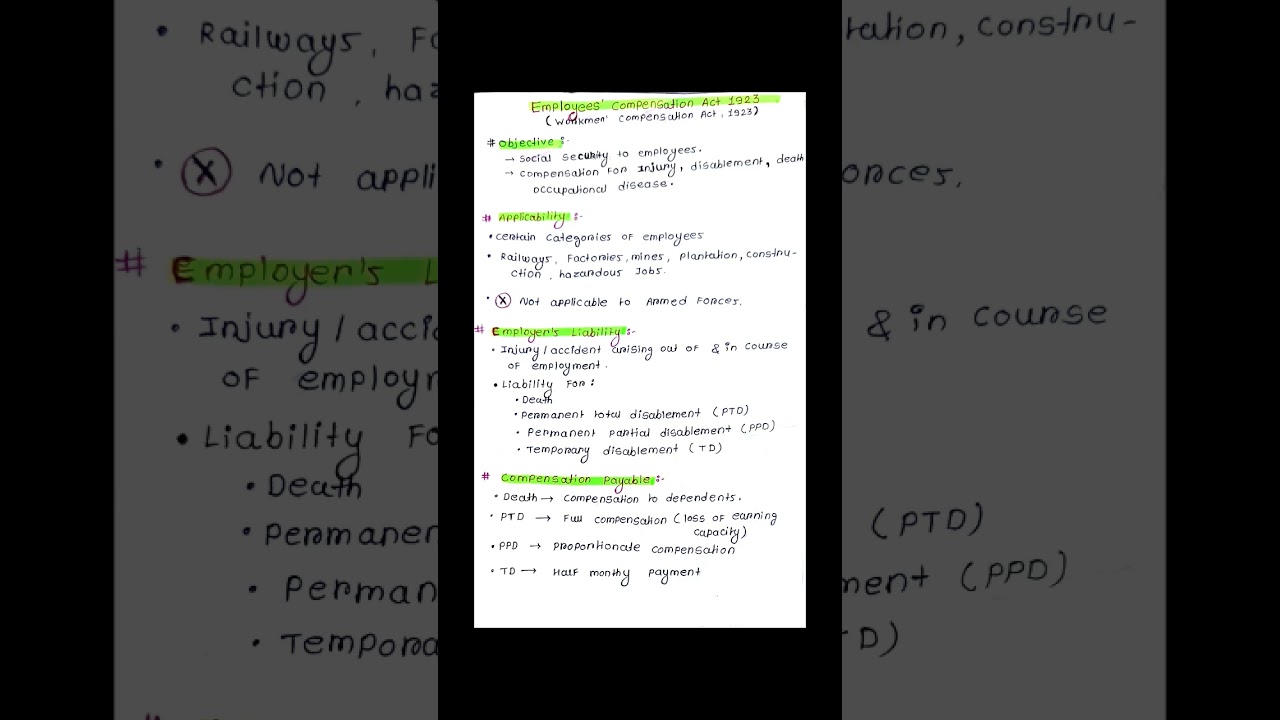 Employees' Compensation Act 1923
(Workmen' Compensation Act, 1923)
# Objective :-
→ Social Security to employees.
→ Compensation For Injury, disablement, death
occupational disease.
# Applicability :-
• Certain Categories of employees
• Railways, Factories, mines, plantation, constru-
ction, hazardous Jobs.
• ⓧ Not applicable to Armed Forces.
# Employer's Liability :-
• Injury/accident arising out of & in course
of employment.
• Liability For :
• Death
• Permanent total disablement (PTD)
• Permanent partial disablement (PPD)
• Temporary disablement (TD)
# Compensation Payable :-
• Death → Compensation to dependents.
• PTD → Full compensation (loss of earning
capacity)
• PPD → Proportionate compensation
• TD → Half monthy payment